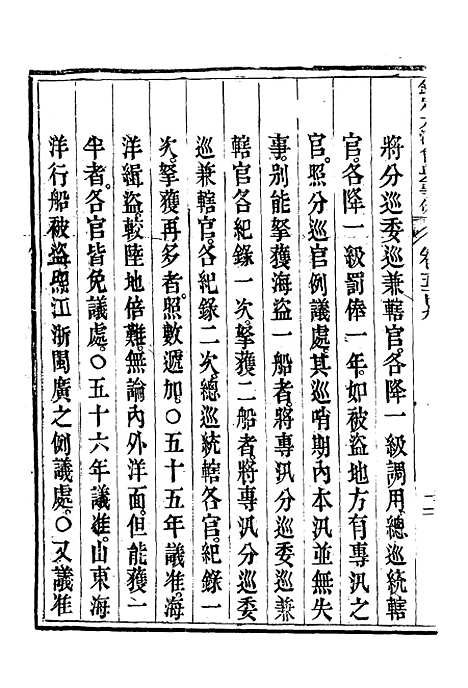 欽定大清會典事例
將分巡委巡兼轄官各降一級調用總巡統轄
官各降一級罰俸一年如被盜地方有專汛之
官照分巡官例議處其巡哨期內本汛並無失
事別能拏獲海盜一船者將專汛分巡委巡兼
轄官各紀錄一次拏獲二船者將專汛分巡委
巡兼轄官各紀錄二次總巡統轄各官紀錄一
次拏獲再多者照數遞加○五十五年議准海
洋緝盜較陸地倍難無論內外洋面但能獲一
半者各官皆免議處○五十六年議准山東海
洋行船被盜照江浙閩廣之例議處○又議准